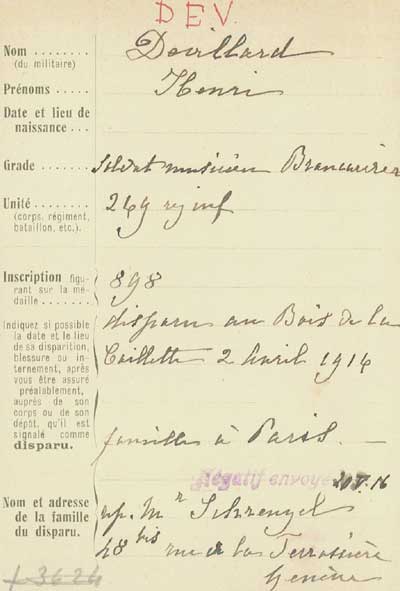 DEV.
Nom ........ Devillard
(du militaire)
Prénoms ..... Henri
Date et lieu de
naissance ...
Grade ....... Soldat musicien Brancardier
Unité ....... 269 reg inf
(corps, régiment,
bataillon, etc.).
Inscription figu-
rant sur la mé-
daille ....... 898
Indiquez si possible
la date et le lieu
de sa disparition,
blessure ou in-
ternement, après
vous être assuré
préalablement,
auprès de son
corps ou de son
dépôt, qu'il est
signalé comme
disparu.
disparu au Bois de la
Caillette 2 Avril 1916
famille à Paris. —
Négatif envoyé 20.5.16
Nom et adresse
de la famille
du disparu.
rép. Mr
48 bis rue de la Terrassière
Genève
13624